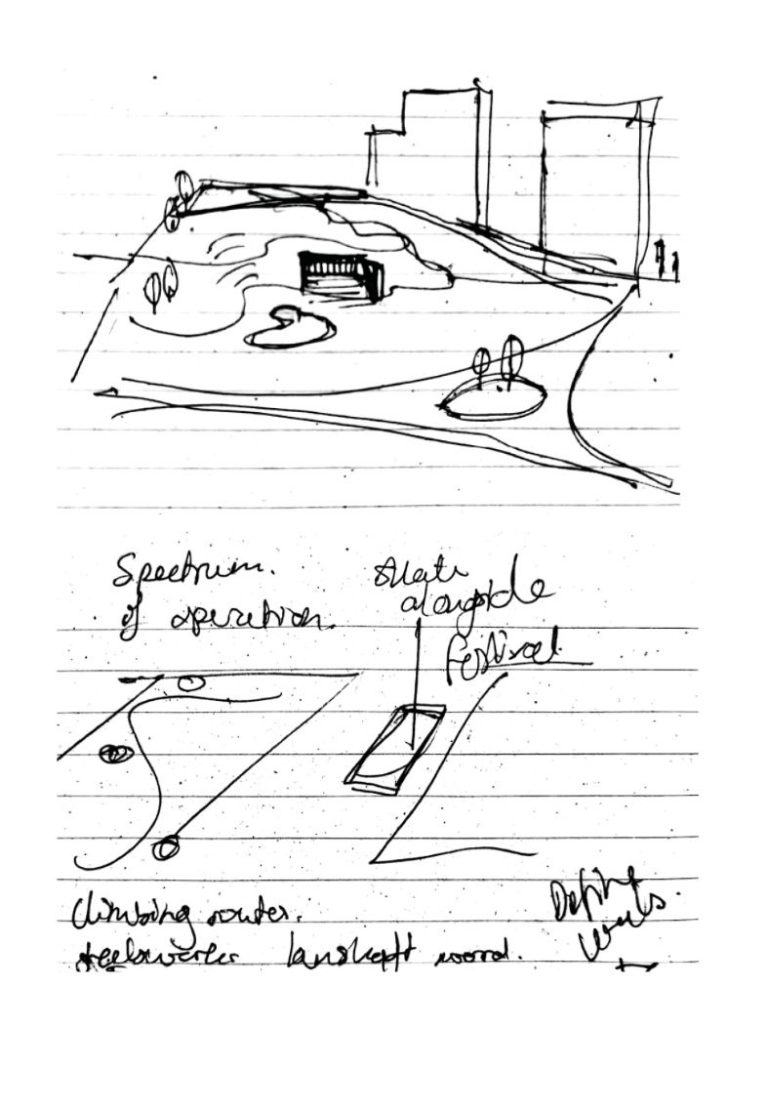 Spectrum.
of operation.
skate
alongside
festival
climbing routes.
steelworks
wood.
Define